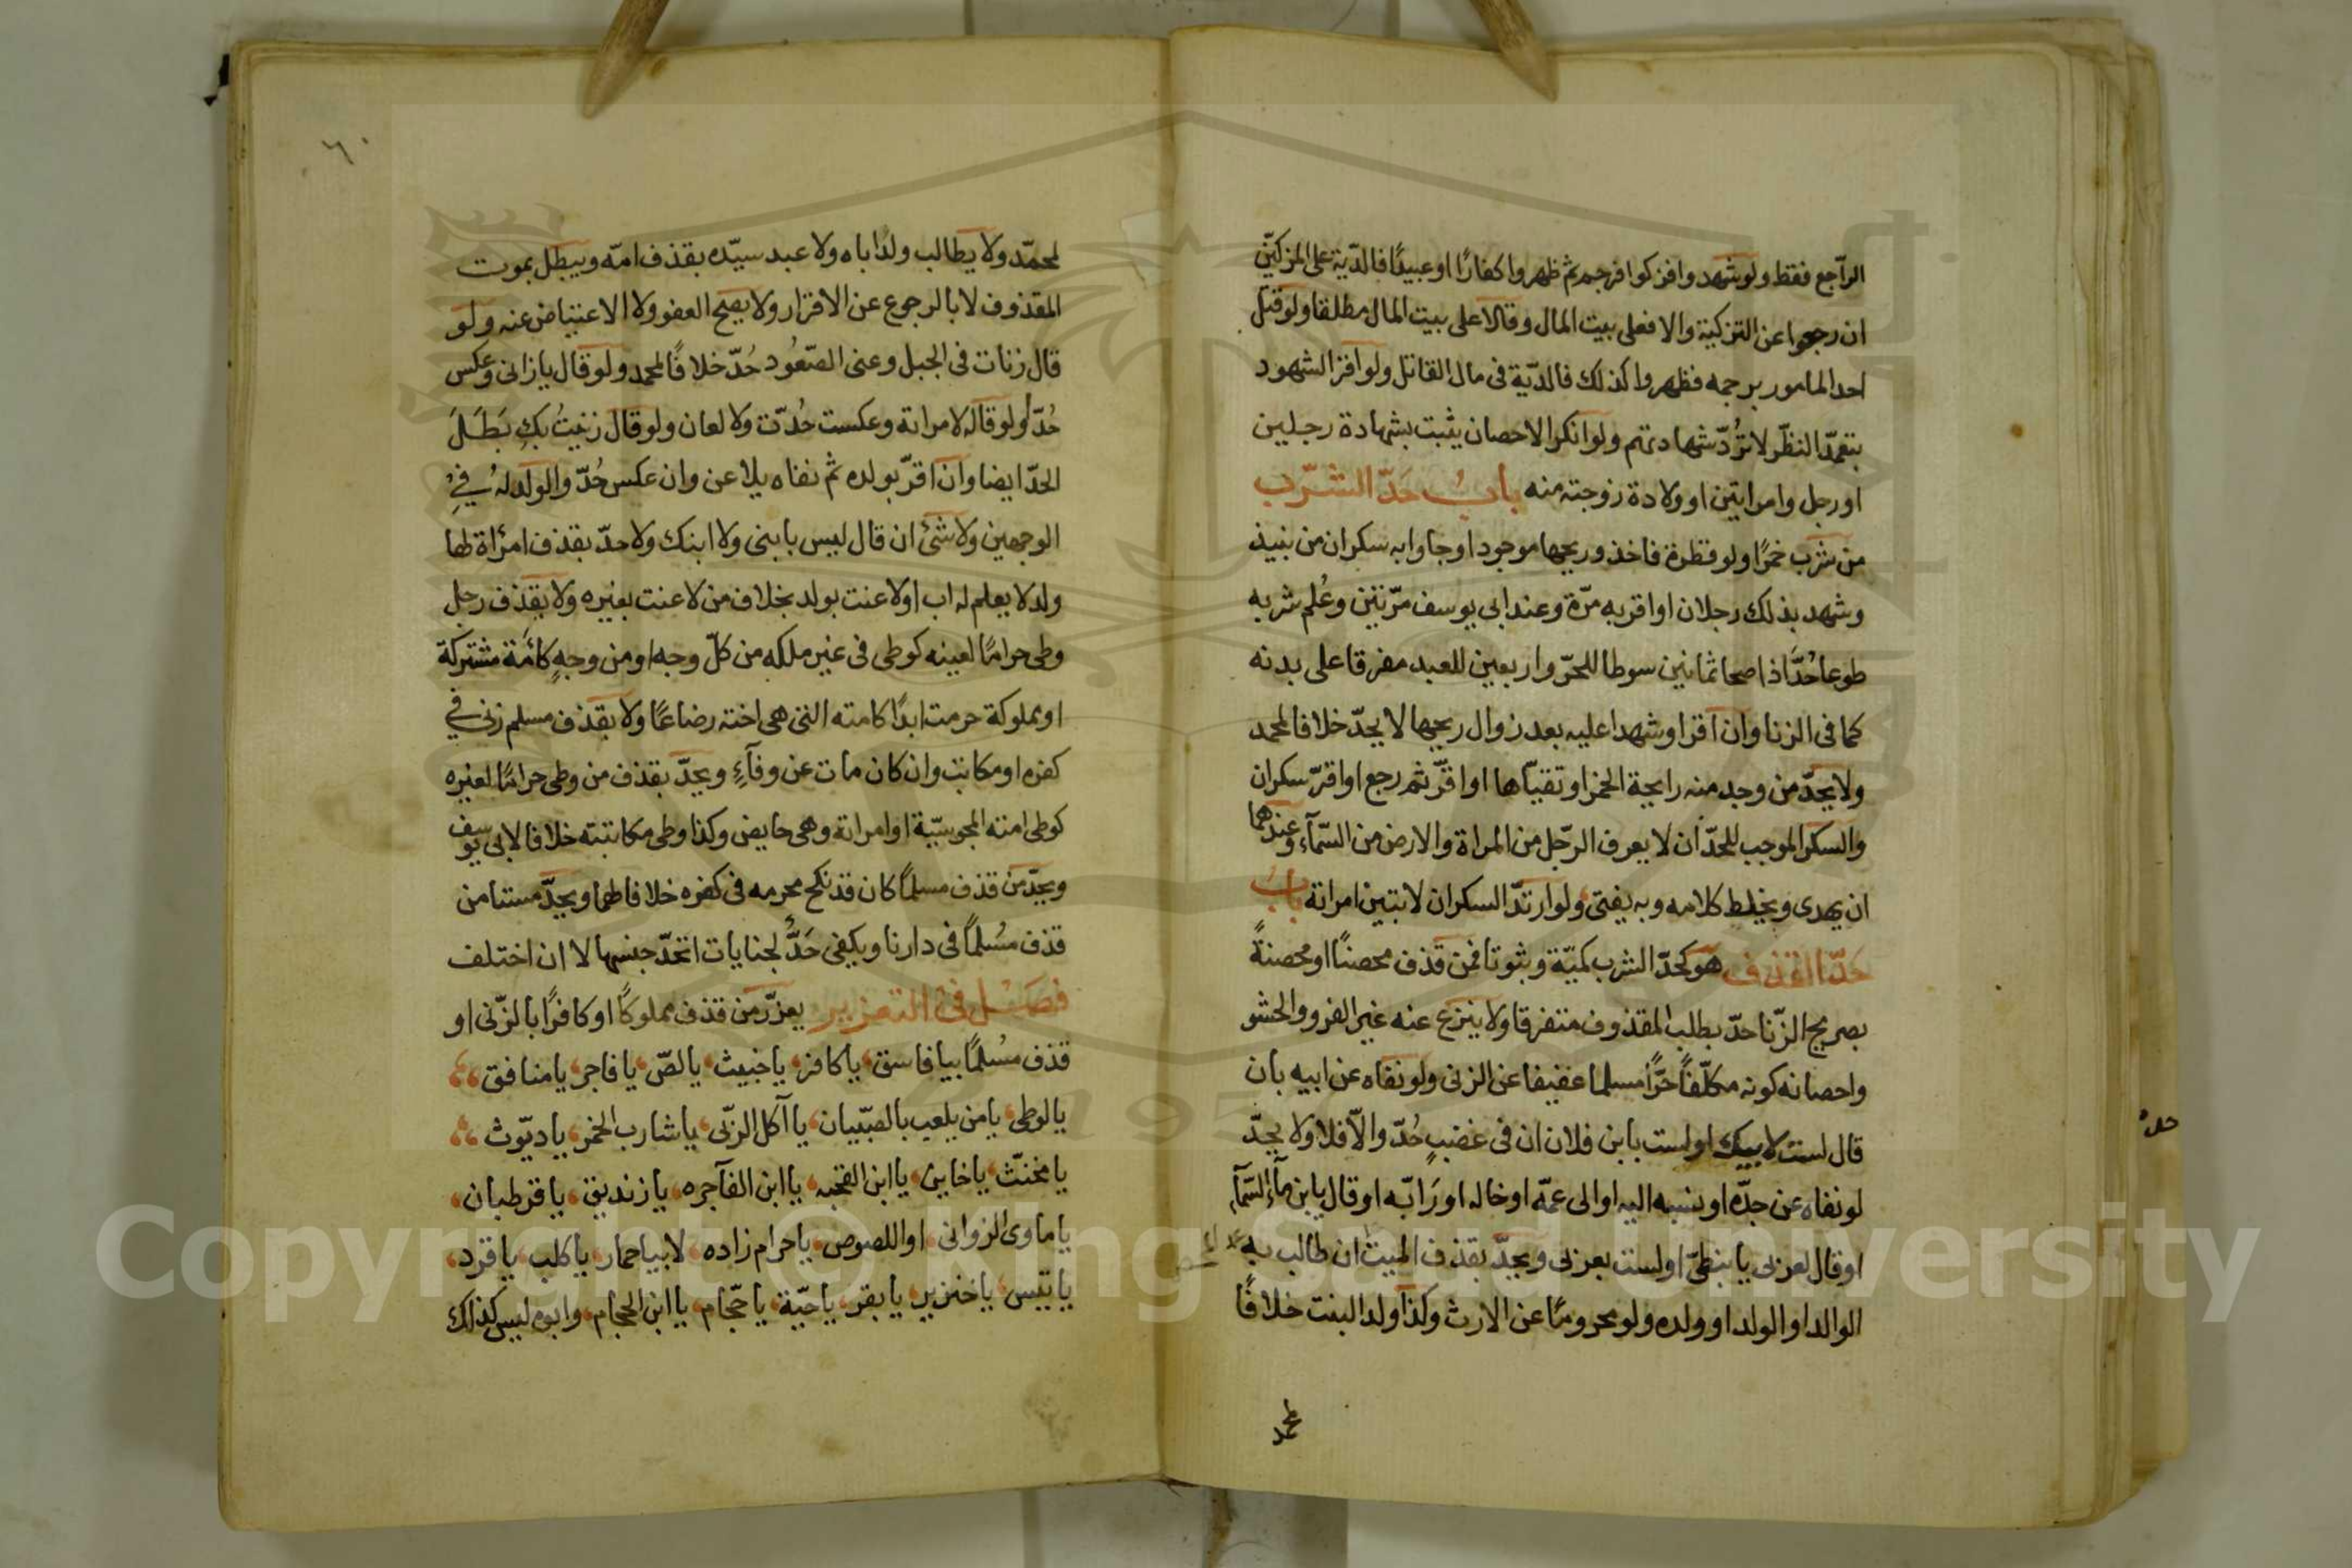 الراجع فقط ولو شهدوا فزكوا فرجم ثم ظهروا كفارًا او عبيدًا فالدّية على المزكيّن
ان رجعوا عن التزكية والا فعلى بيت المال وقالا على بيت المال مطلقا ولو قتل
احد المامور برجمه فظهروا كذلك فالدّية فى مال القاتل ولو اقر الشهود
بتعمّد النظر لا تُردّ شهادتهم ولو انكر الاحصان يثبت بشهادة رجلين
او رجل وامراتين او ولادة زوجته منه بابُ حَدّ الشرب
من شرب خمرًا ولو قطرة فاخذ وريحها موجود او جاوا به سكران من نبيذ
وشهد بذلك رجلان او اقر به مرّة وعند ابى يوسف مرّتين وعُلم شربه
طوعا حُدَّ اذا صحا ثمانين سوطا للحرّ واربعين للعبد مفرقا على بدنه
كما فى الزنا وان اقر او شهدا عليه بعد زوال ريحها لا يحدّ خلافا لمحمد
ولا يحدّ من وجد منه رايحة الخمر او تقيّاها او اقرّ ثم رجع او اقرّ سكران
والسكر الموجب للحدّ ان لا يعرف الرّجل من المراة والارض من السّمآء وعندهما
ان يهدى ويخلط كلامه وبه يفتى ولو ارتدّ السكران لا تبين امراته بابُ
حَدّ القذف هو كحدّ الشرب كميّة وثبوتا فمن قذف محصنًا او محصنةً
بصريح الزّنا حدّ بطلب المقذوف متفرقا ولا ينزع عنه غير الفرو والحشو
واحصانه كونه مكلّفًا حرًّا مسلما عفيفا عن الزنى ولو نفاه عن ابيه بان
قال لست لابيك او لست بابن فلان ان فى غضبٍ حُدّ والاّ فلا ولا يحدّ
لو نفاه عن جدّه او نسبه اليه او الى عمّه او خاله او رَابّه او قال يا ابن مآء السّمآء
او قال لعربى يا نبطىّ او لست بعربى ويحدّ بقذف الميت ان طالب به
الوالد او الولد او ولده ولو محرومًا عن الارث وكذا ولد البنت خلافًا
لمحمّد
٦٠
لمحمّد ولا يطالب ولدًا باه ولا عبد سيّده بقذف امّه ويبطل بموت
المقذوف لا بالرجوع عن الاقرار ولا يصح العفو ولا الاعتياض عنه ولو
قال زنات فى الجبل وعنى الصّعُود حُدّ خلافًا لمحمد ولو قال يا زانى وعكس
حُدّا ولو قاله لامراته وعكست حُدّت ولا لعان ولو قال زنيتُ بكِ بَطَلَ
الحدّ ايضا وان اقرّ بولده ثم نفاه يلاعن وان عكس حُدّ والولد له فى
الوجهين ولا شئ ان قال ليس بابنى ولا ابنك ولا حدّ بقذف امرأة لها
ولد لا يعلم له اب او لاعنت بولد بخلاف من لاعنت بغيره ولا بقذف رجل
وطى حرامًا لعينه كوطى فى غير ملكه من كلّ وجه او من وجهٍ كأمة مشتركة
او مملوكة حرمت ابدًا كامته التى هى اخته رضاعًا ولا بقذف مسلم زنى فى
كفره او مكاتب وان كان مات عن وفآءٍ ويحدّ بقذف من وطى حرامًا لغيره
كوطى امته المجوسيّة او امراته وهى حايض وكذا وطى مكاتبته خلافا لابى يوسف
ويحدّ من قذف مسلمًا كان قد نكح محرمه فى كفره خلافا لهما ويحدّ مستامن
قذف مسُلمًا فى دارنا ويكفى حَدٌّ لجنايات اتحدّ جنسها لا ان اختلف
فصَل فى التعزير يعزّر من قذف مملوكًا او كافرًا بالزّنى او
قذف مسُلمًا بيا فاسق يا كافر يا خبيث يا لصّ يا فاجر يا منافق
يا لوطى يا من يلعب بالصّبيان يا آكل الربى يا شارب الخمر يا ديّوث
يا مخنّث يا خاين يا ابن القحبه يا ابن الفآجره يا زنديق يا قرطبان
يا ماوى الزوانى او اللصوص يا حرام زاده لا بيا حمار يا كلب يا قرد
يا تيس يا خنزير يا بقر يا حيّة يا حجّام يا ابن الحجام وابوه ليس كذلك
Copyright © King Saud University
1957